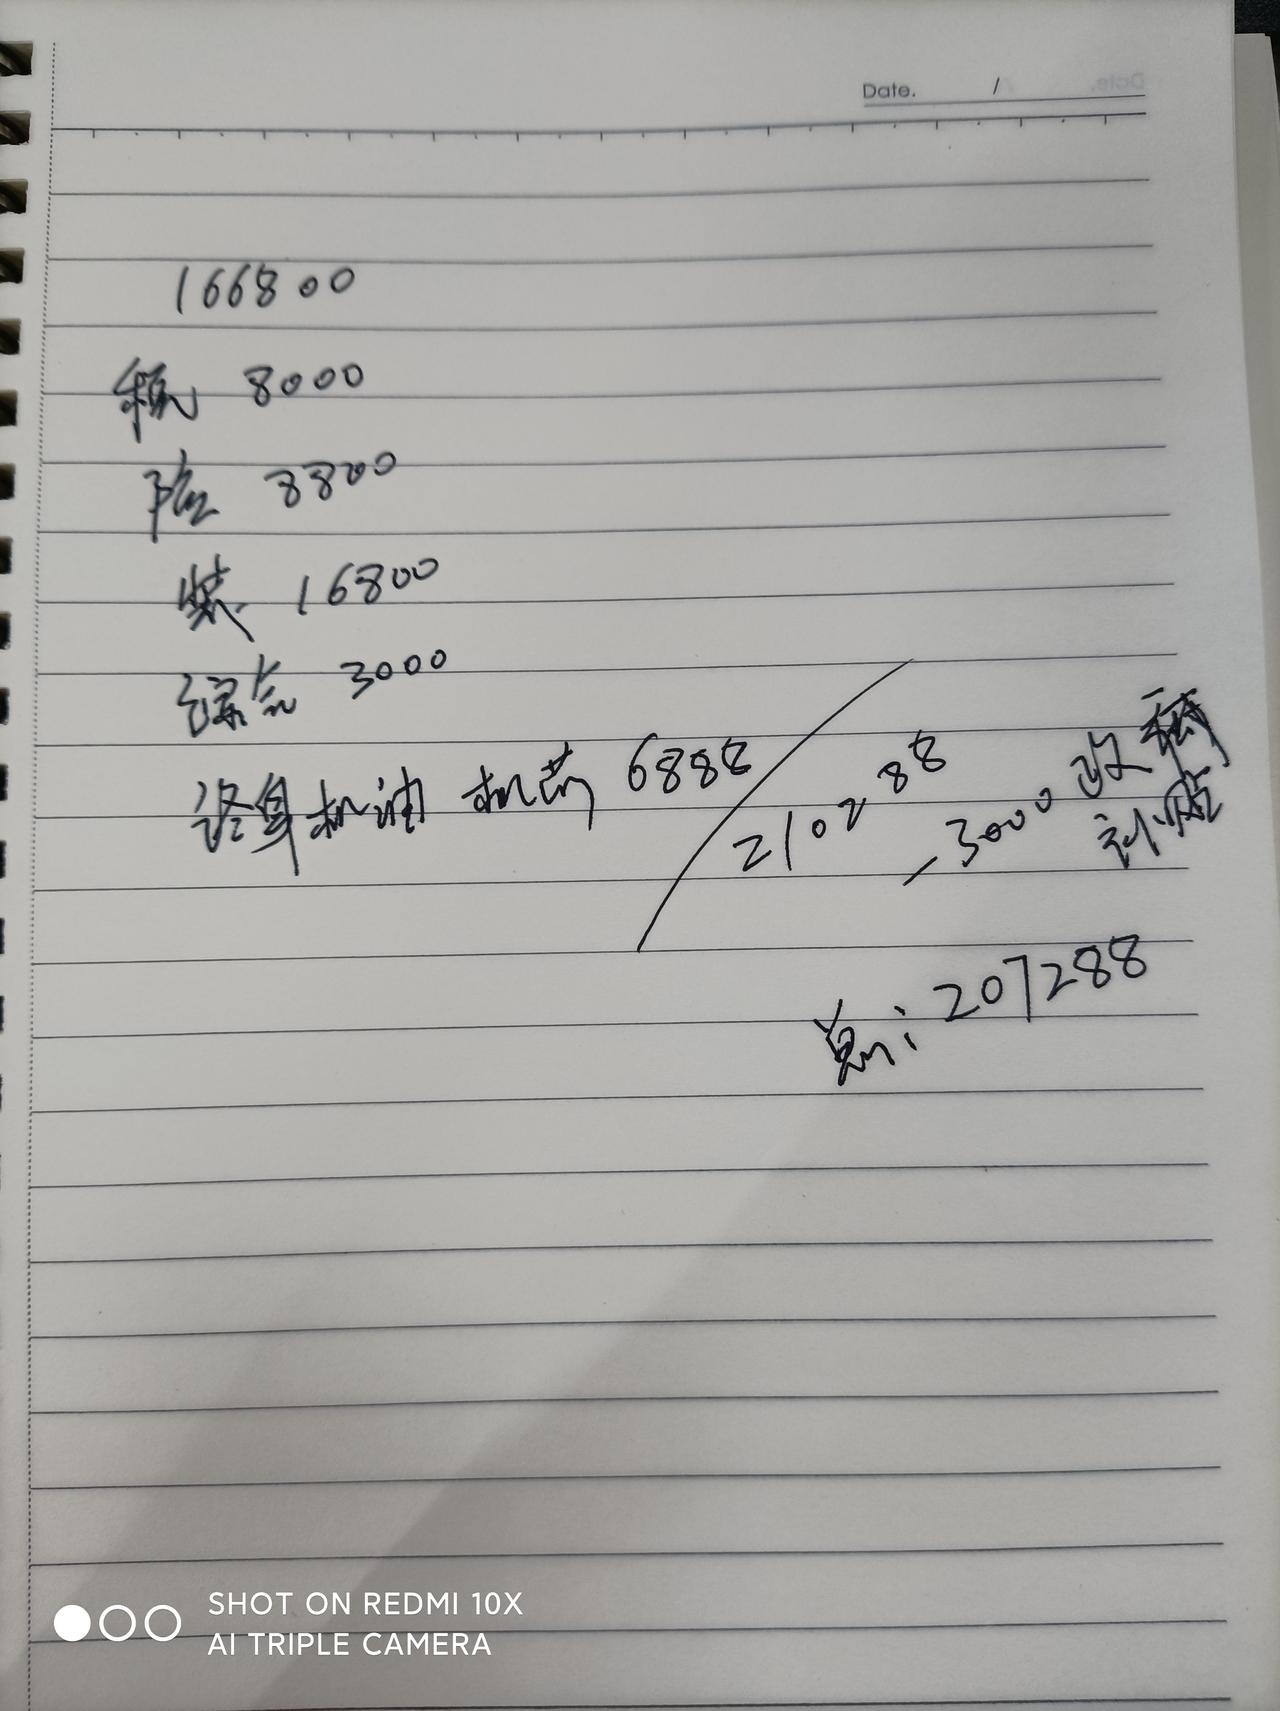 Date. /
166800
税 8000
险 8800
装 16800
综合 3000
终身机油 机滤 6888
210288
-3000 政府
补贴
总: 207288
SHOT ON REDMI 10X
AI TRIPLE CAMERA